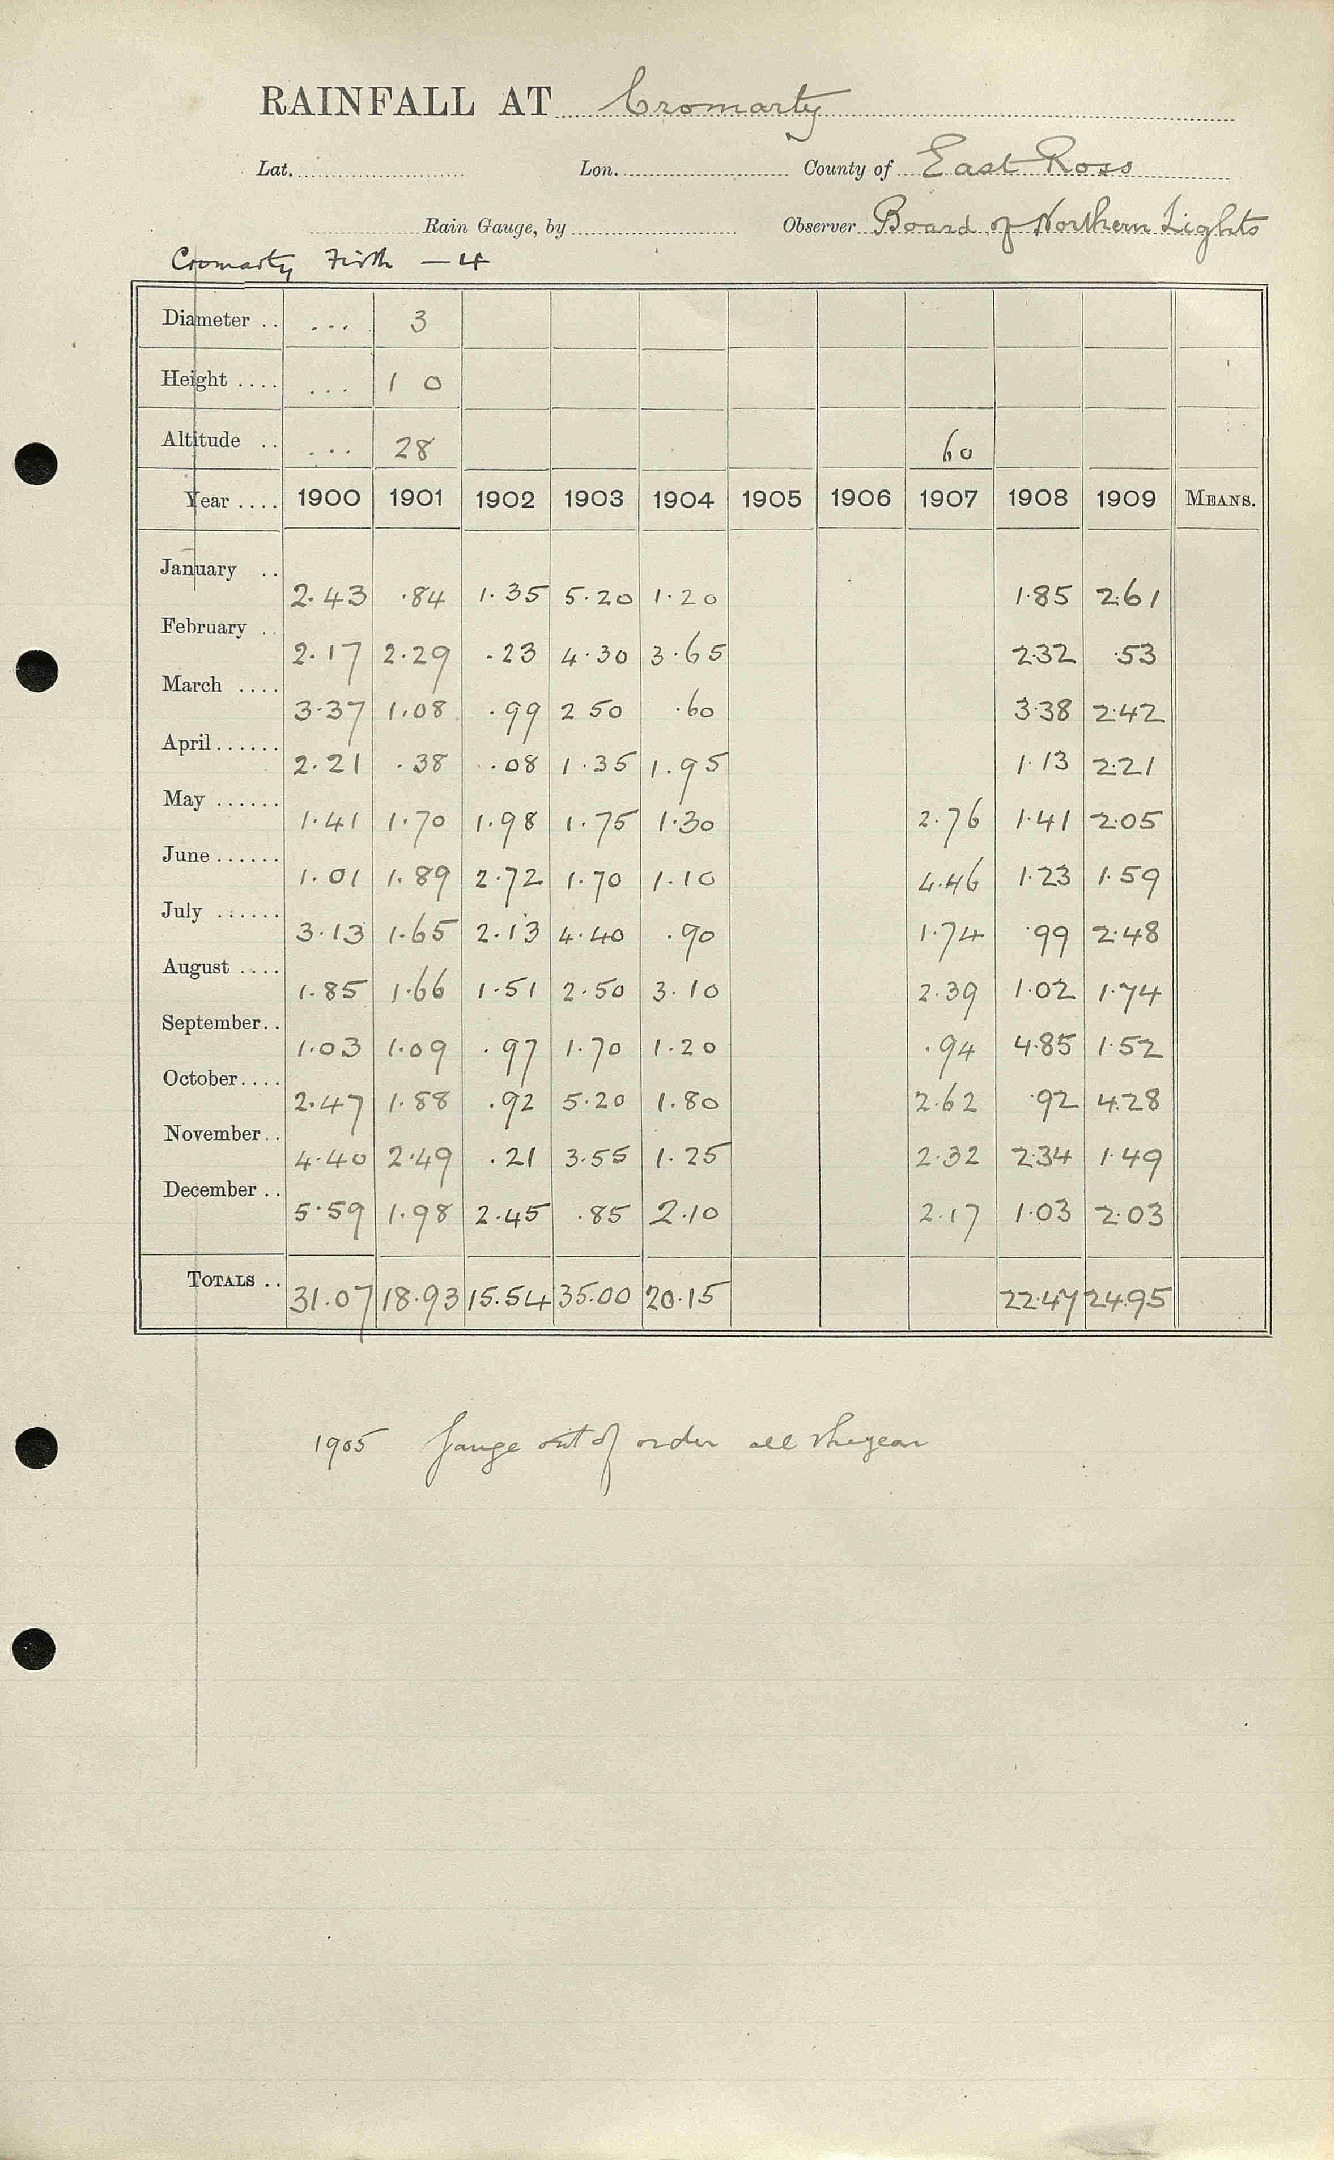 RAINFALL AT Cromarty
Lat. Lon. County of East Ross
Rain Gauge, by Observer Board of Northern Lights
Cromarty Firth — 4
Diameter .. ... 3
Height .... ... 1 0
Altitude .. ... 28 60
Year .... 1900 1901 1902 1903 1904 1905 1906 1907 1908 1909 MEANS.
January .. 2.43 .84 1.35 5.20 1.20 1.85 2.61
February .. 2.17 2.29 .23 4.30 3.65 2.32 .53
March .... 3.37 1.08 .99 2 50 .60 3.38 2.42
April ...... 2.21 .38 .08 1.35 1.95 1.13 2.21
May ...... 1.41 1.70 1.98 1.75 1.30 2.76 1.41 2.05
June ...... 1.01 1.89 2.72 1.70 1.10 4.46 1.23 1.59
July ...... 3.13 1.65 2.13 4.40 .90 1.74 .99 2.48
August .... 1.85 1.66 1.51 2.50 3.10 2.39 1.02 1.74
September .. 1.03 1.09 .97 1.70 1.20 .94 4.85 1.52
October .... 2.47 1.88 .92 5.20 1.80 2.62 .92 4.28
November .. 4.40 2.49 .21 3.55 1.25 2.32 2.34 1.49
December .. 5.59 1.98 2.45 .85 2.10 2.17 1.03 2.03
TOTALS .. 31.07 18.93 15.54 35.00 20.15 22.47 24.95
1905 Gauge out of order all the year